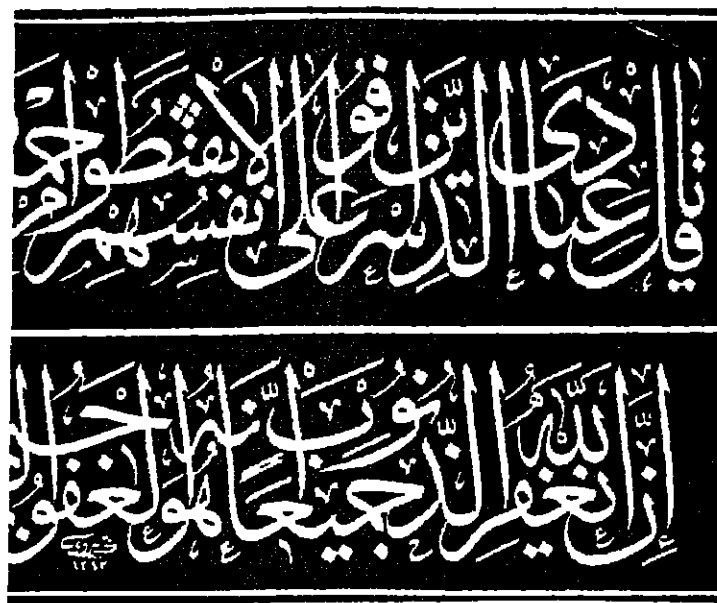 قل يا عبادي الذين أسرفوا على أنفسهم لا تقنطوا
إن الله يغفر الذنوب جميعا إنه هو الغفور